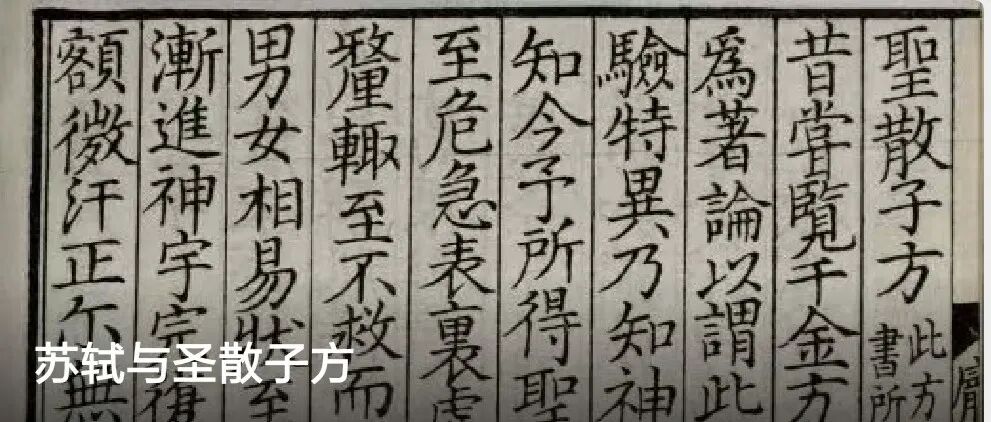 聖散子方
此方
書所
昔甞覧千金方
爲著論以謂此
驗特異乃知神
知今予所得聖
至危急表裏
釐輙至不救而
男女相易狀至
漸進神宇完復
額微汗正尓無
苏轼与圣散子方